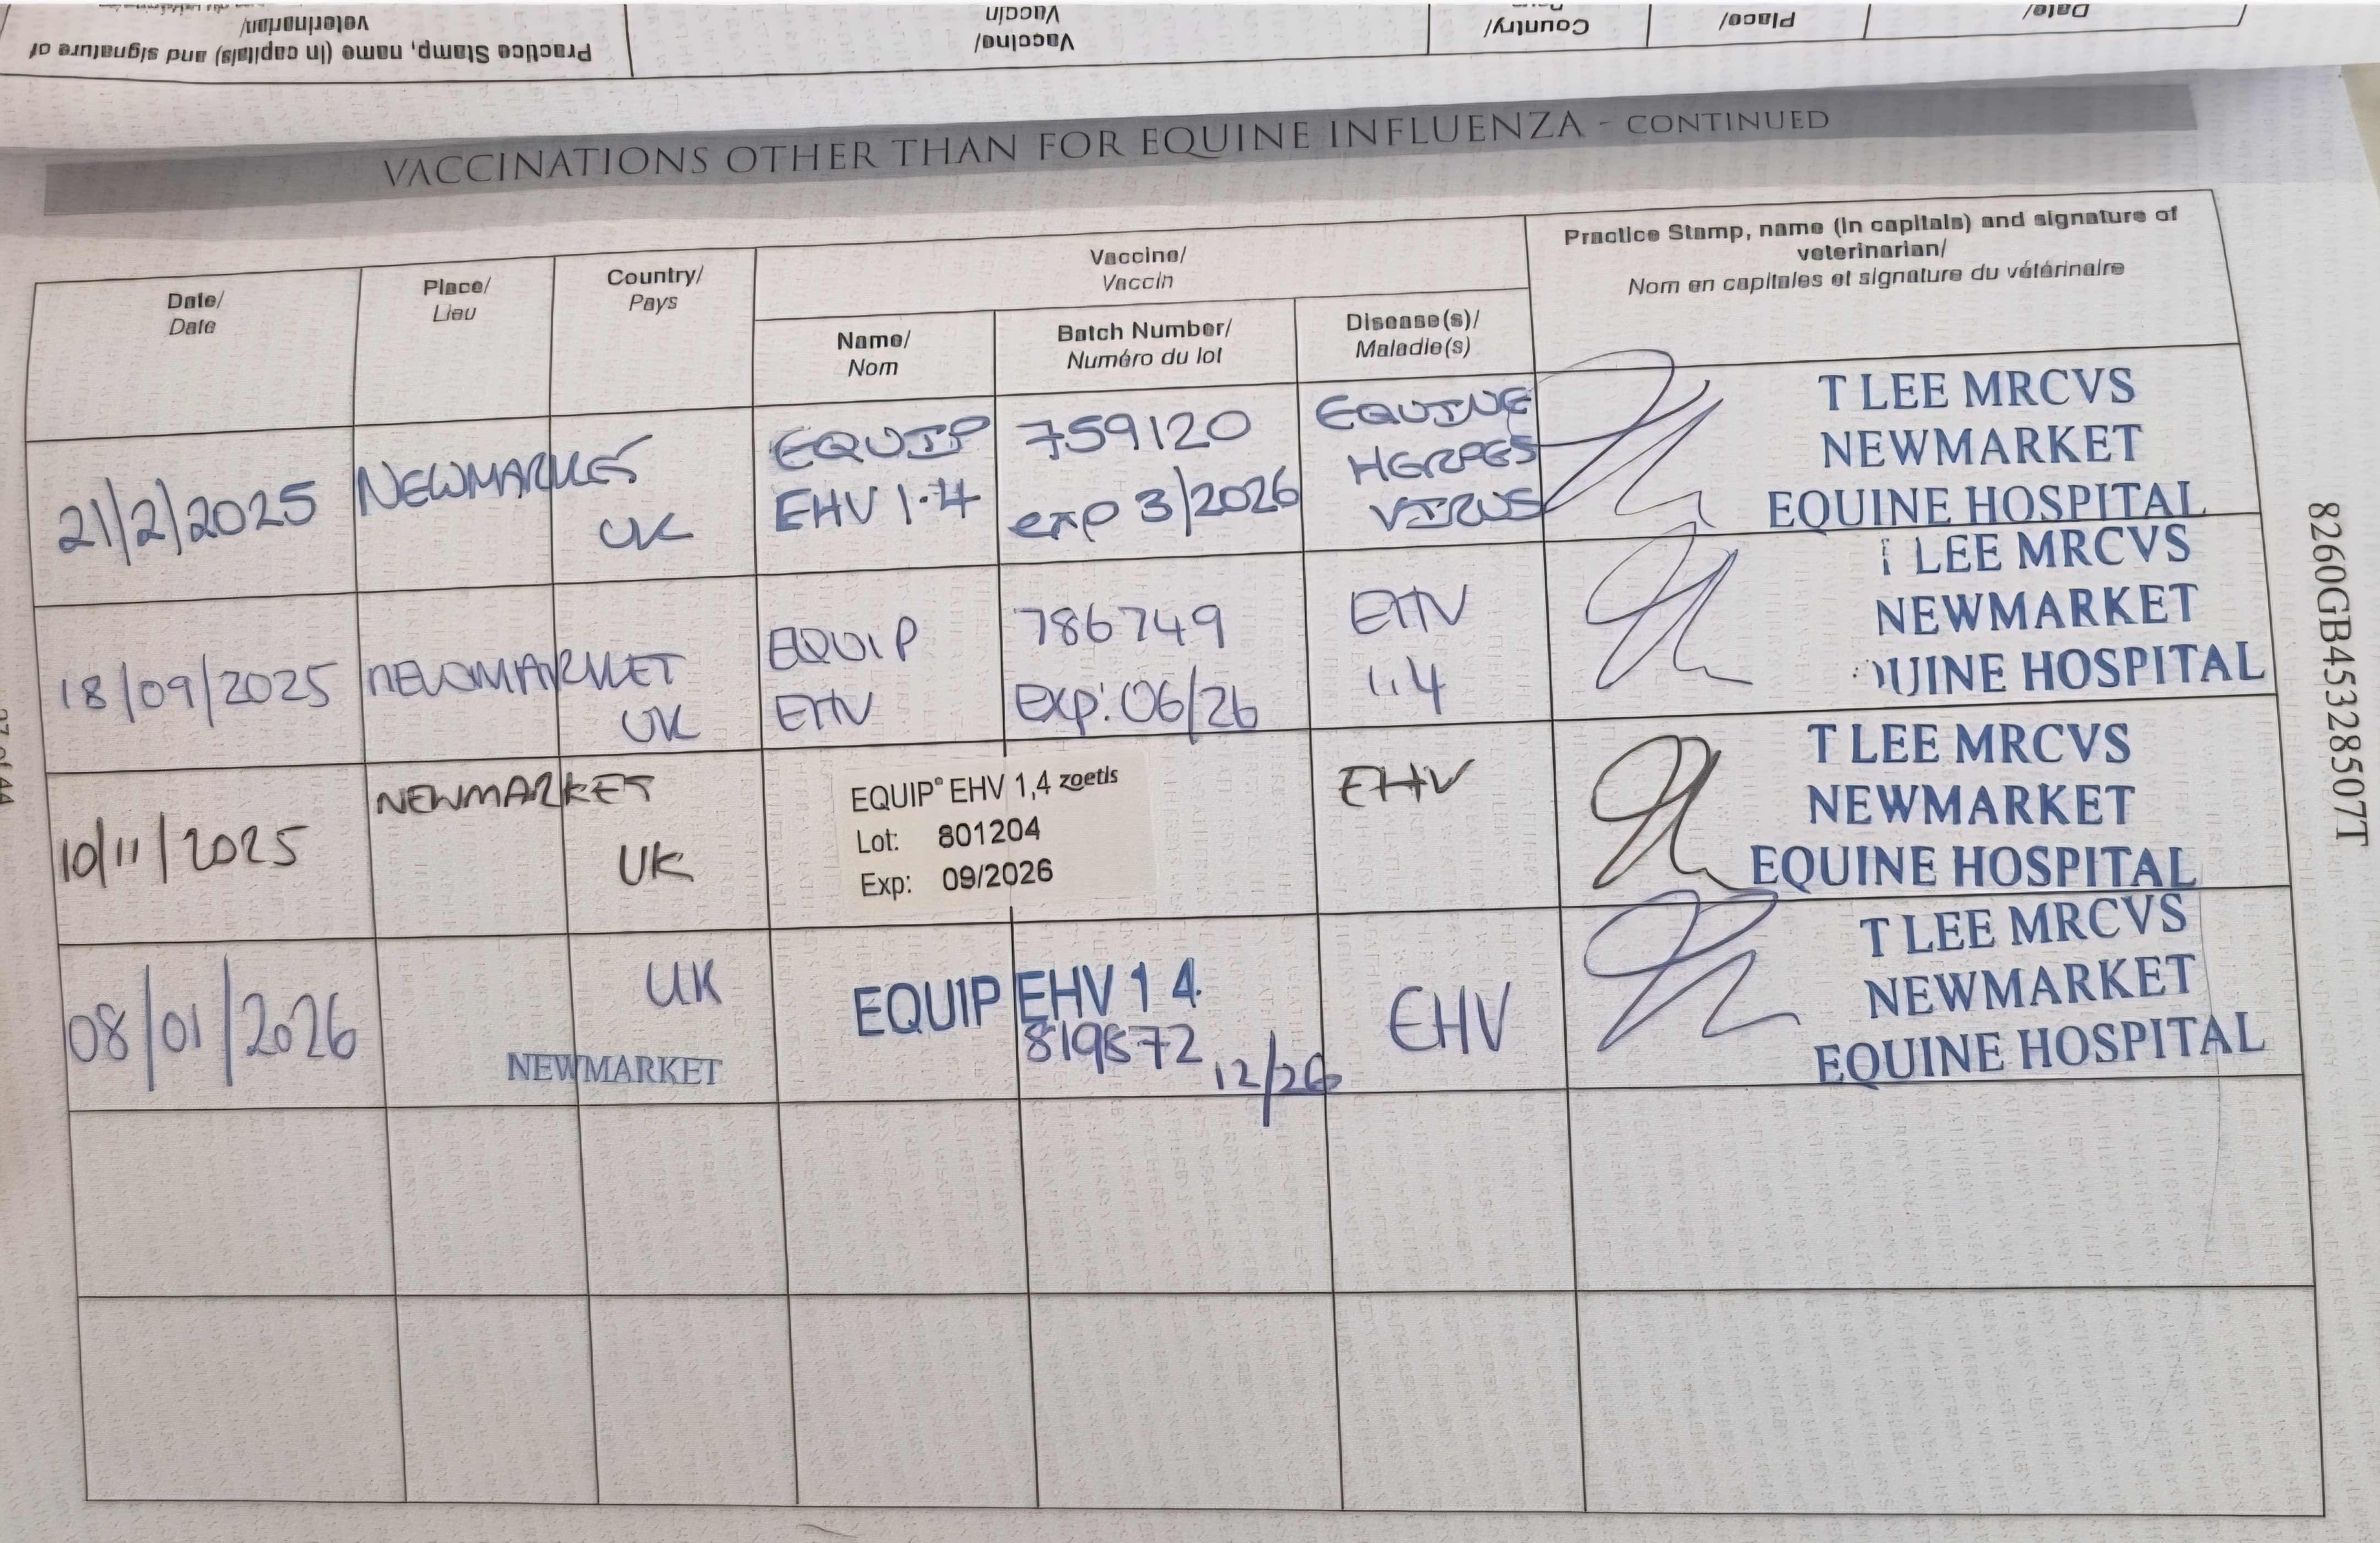 Practice Stamp, name (in capitals) and signature of
veterinarian/
Vaccine/
Vaccin
Country/
Place/
Date/
VACCINATIONS OTHER THAN FOR EQUINE INFLUENZA - CONTINUED
Date/
Date
Place/
Lieu
Country/
Pays
Vaccine/
Vaccin
Name/
Nom
Batch Number/
Numéro du lot
Disease(s)/
Maladie(s)
Practice Stamp, name (in capitals) and signature of
veterinarian/
Nom en capitales et signature du vétérinaire
21/2/2025
NEWMARKET
UK
EQUIP
EHV 1.4
759120
exp 3/2026
EQUINE
HERPES
VIRUS
T LEE MRCVS
NEWMARKET
EQUINE HOSPITAL
18/09/2025
NEWMARKET
UK
EQUIP
EHV
786749
exp: 06/26
EHV
1.4
LEE MRCVS
NEWMARKET
QUINE HOSPITAL
10/11/2025
NEWMARKET
UK
EQUIP® EHV 1,4 zoetis
Lot: 801204
Exp: 09/2026
EHV
T LEE MRCVS
NEWMARKET
EQUINE HOSPITAL
08/01/2026
UK
NEWMARKET
EQUIP EHV 1 4
12/26
EHV
T LEE MRCVS
NEWMARKET
EQUINE HOSPITAL
8260GB45328507T